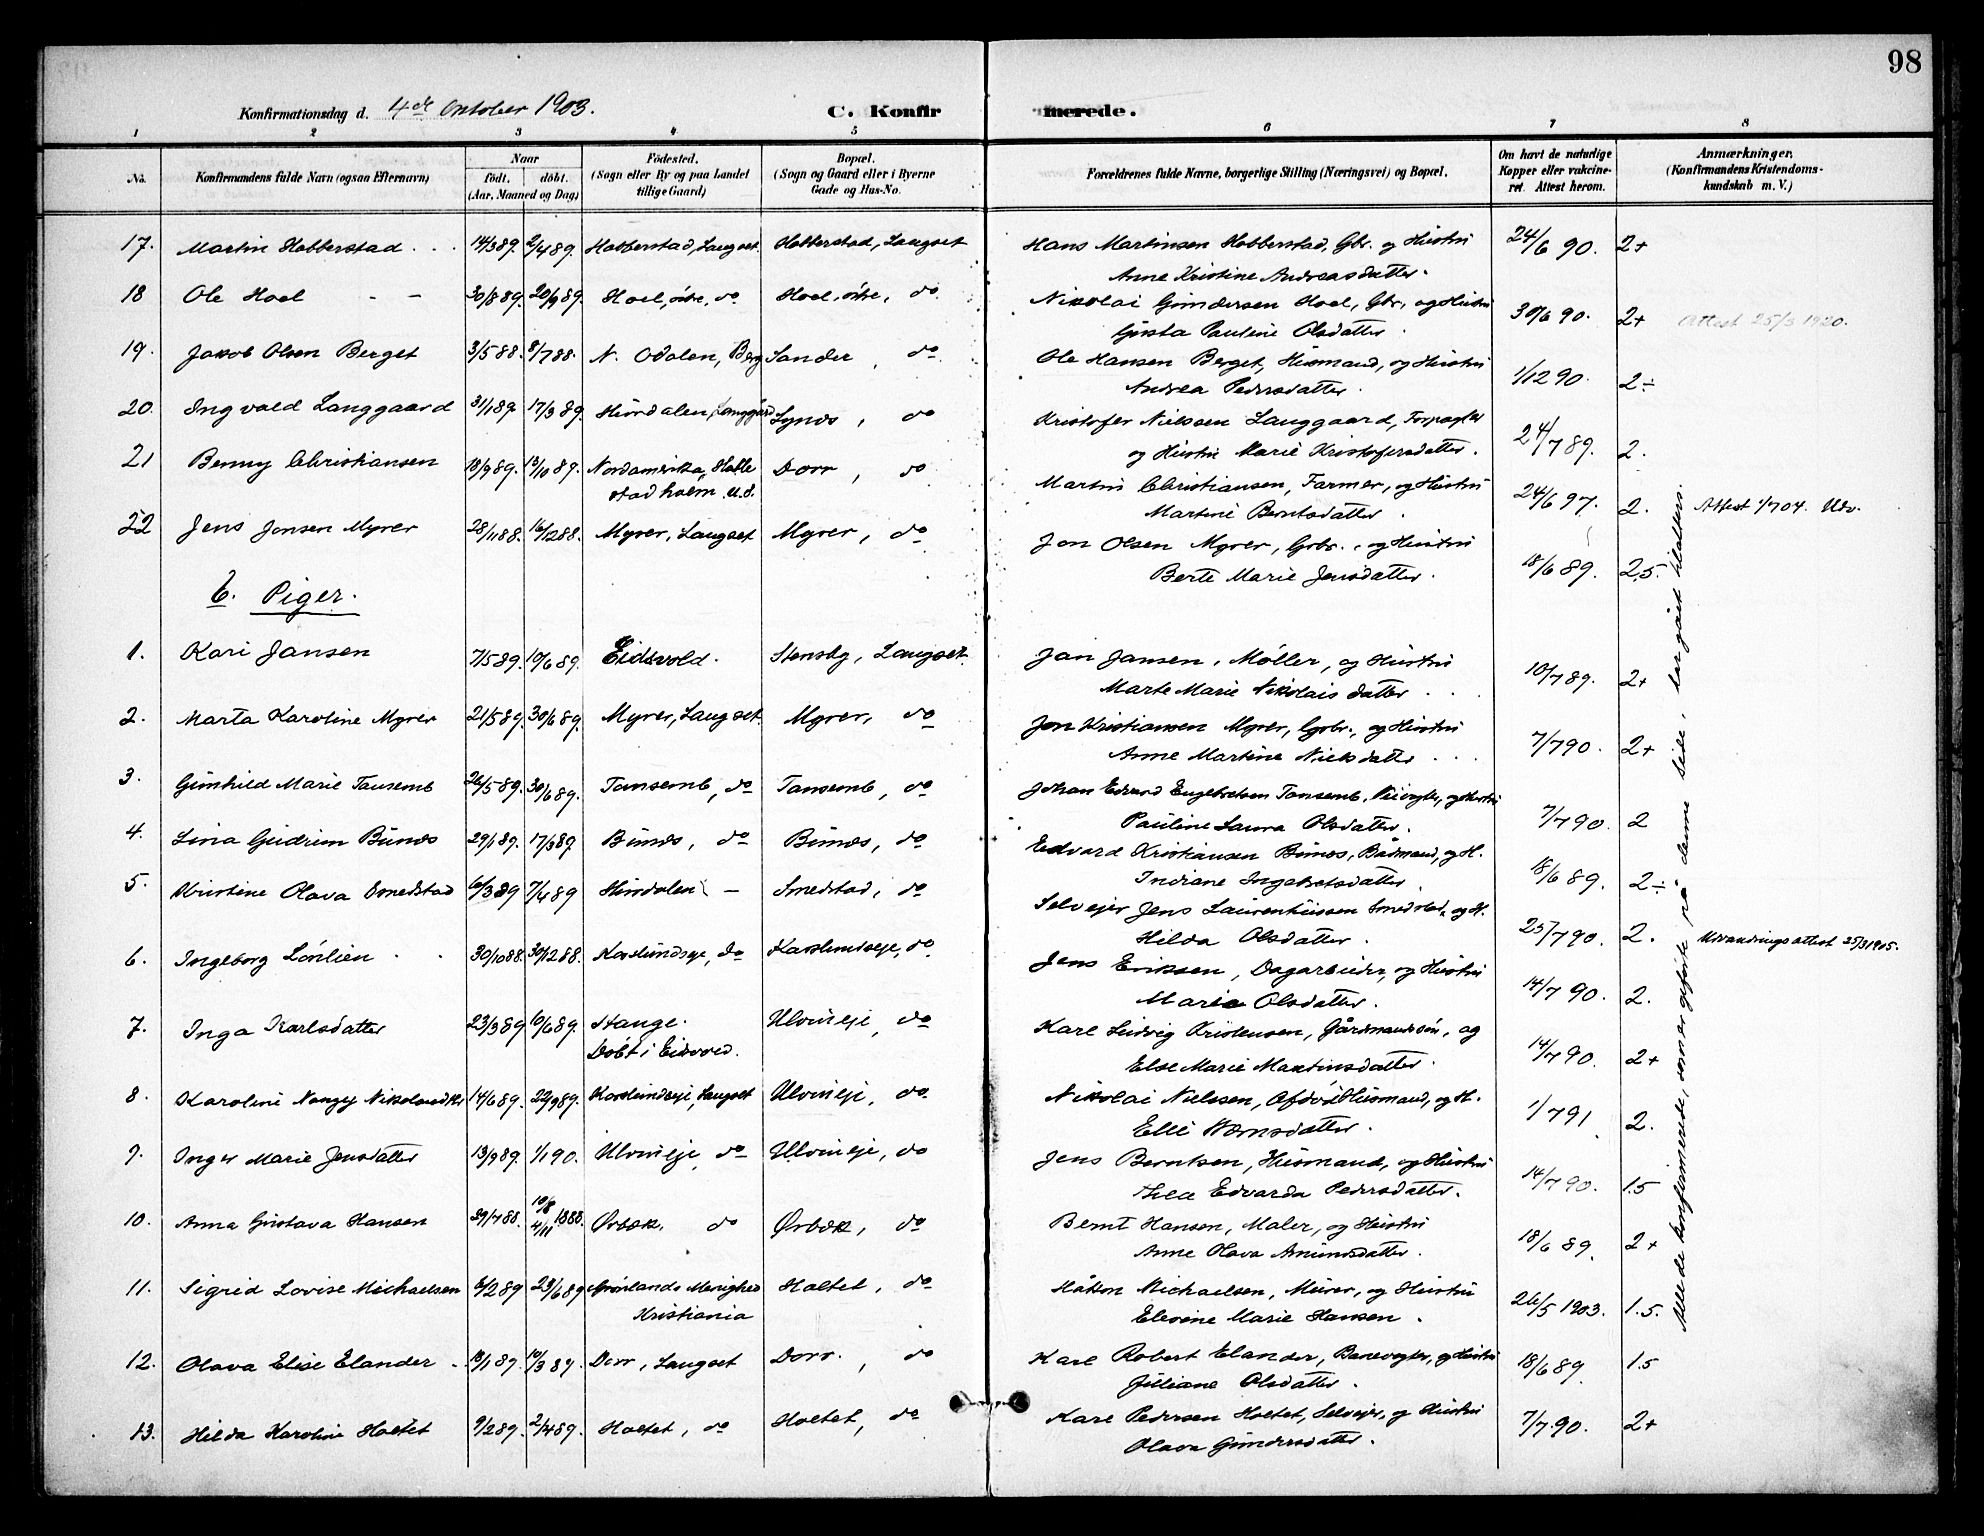 98
Konfirmationsdag d. 4de Oktober 1903. C. Konfirmerede.
1 2 3 4 5 6 7 8
No. Konfirmandens fulde Navn (ogsaa Efternavn) Naar født. døbt. (Aar, Maaned og Dag) Fødested. (Sogn eller By og paa Landet tillige Gaard) Bopæl. (Sogn og Gaard eller i Byerne Gade og Hus-No. Forældrenes fulde Navne, borgerlige Stilling (Næringsvei) og Bopæl. Om havt de naturlige Kopper eller vakcineret. Attest herom. Anmærkninger. (Konfirmandens Kristendomskundskab m. V.)
17. Martin Habberstad 14/389. 2/489. Habberstad, Langset. Habberstad, Langset Hans Martinsen Habberstad, Gbr. og Hustru 24/6 90. 2+
Anne Kristine Andreasdatter.
18 Ole Hoel - - 30/889. 20/989. Hoel, østre, do Hoel, østre, do. Nikolai Gundersen Hoel, Gbr., og Hustru 30/6 90. 2+ Attest 25/3 1920.
Gusta Pauline Olsdatter.
19. Jakob Olsen Berget 3/588. 8/788. N. Odalen, Berg Sander, do Ole Hansen Berget, Husmand, og Hustru 1/12 90. 2÷
Andrea Pedersdatter.
20. Ingvald Langgaard 31/189. 17/389. Hurdalen, Langgård Lynæs, do Kristofer Nielsen Langgaard, Forpagter 24/789. 2.
og Hustru Marie Kristofersdatter.
21 Benny Christiansen 18/989. 13/1089. Nordamerika, Halle Dorr, do Martin Christiansen, Farmer, og Hustru 24/697. 2. Attest 1/704. Udv.
stad holm u.d. Martine Berntsdatter.
22 Jens Jonsen Myrer 28/1188. 16/1288. Myrer, Langset Myrer, do Jon Olsen Myrer, Grbr., og Hustru 18/689. 2,5.
Berte Marie Jensdatter.
b. Piger.
1. Kari Jansen 7/589. 10/689. Eidsvold. Stensby, Langset. Jan Jansen, Møller, og Hustru 10/789. 2+
Marte Marie Nikolaisdatter.
2. Marta Karoline Myrer 21/589. 30/689. Myrer, Langset. Myrer, do Jon Kristiansen Myrer, Grbr., og Hustru 7/790. 2+
Anne Martine Nielsdatter
3. Gunhild Marie Tansemb 26/589. 30/689. Tansemb, do Tansemb, do Johan Edvard Engebretsen Tansemb, Veivogter, og Hustru 7/790. 2
Pauline Laura Olsdatter.
4. Lina Gudrun Bunæs 29/189. 17/389. Bunæs, do Bunæs, do Edvard Kristiansen Bunæs, Bådmand, og H. 18/689. 2÷
Indiane Ingebretsdatter.
5. Kristine Olava Smedstad 6/389 7/489 Hurdalen - Smedstad, do Selveier Jens Laurentiussen Smedstad, og H. 25/790. 2. Udvandringsattest 25/31905.
Hilda Olsdatter.
6. Ingeborg Lønlien 30/1088. 30/1288. Karslundseje, do Karslundseje, do. Jens Eriksen, Dagarbeider, og Hustru 14/790. 2.
Marie Olsdatter.
7. Inga Karlsdatter 23/389 10/689. Stange. Ulvineje, do Karl Ludvig Kristensen, Gårdmandssøn, og 14/790. 2+
Døbt i Eidsvold. Else Marie Martinsdatter.
8. Karoline Nangy Nikolaidtr 14/689. 22/989. Karslundseje, Langset Ulvineje, do. Nikolai Nielssen, Husmand, og H. 1/791 2.
Elli
9. Inger Marie Jensdatter 13/989. 1/190. Ulvineje, do Ulvineje, do Jens Berntsen, Husmand, og Hustru 14/790. 1.5
Edvarda Pedersdatter.
10. Anna Gustava Hansen 29/788. 10/8 4/11 1888. Ørbæk, do Ørbæk, do Bernt Hansen, Maler, og Hustru 18/689. 2+
Anne Olava Amundsdatter.
11. Sigrid Lovise Michaelsen 6/289 23/689 Grønlands Menighed Holtet, do Håkon Michaelsen, Murer, og Hustru 26/5 1903. 1.5.
Kristiania Elevine Marie Hansen.
12. Olava Elise Elander 18/189. 10/389. Dorr, Langset Dorr, do Karl Robert Elander, Banevogter, og Hustru 18/689. 1.5
Juliane Olsdatter.
13. Hilda Karoline Holtet 9/289. 2/489. Holtet, do Holtet, do Karl Pedersen Holtet, Selveier, og Hustru 7/790. 2+
Olava Gundersdatter.
Alle de konfirmerede, som er opførte på denne side, har gået til alters.